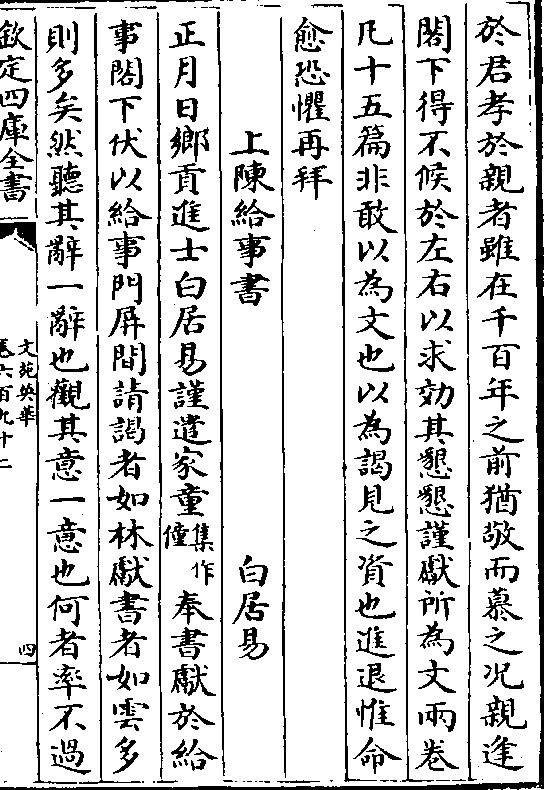 於君孝於親者雖在千百年之前猶敬而慕之况親逢
閤下得不候於左右以求効其懇懇謹獻所為文兩卷
凡十五篇非敢以為文也以為謁見之資也進退惟命
愈恐懼再拜
上陳給事書
白居易
正月日鄉貢進士白居易謹遣家童集作僮奉書獻於給
事閤下伏以給事門屏間請謁者如林獻書者如雲多
則多矣然聽其辭一辭也觀其意一意也何者率不過
欽定四庫全書
文苑英華
卷六百九十二
四